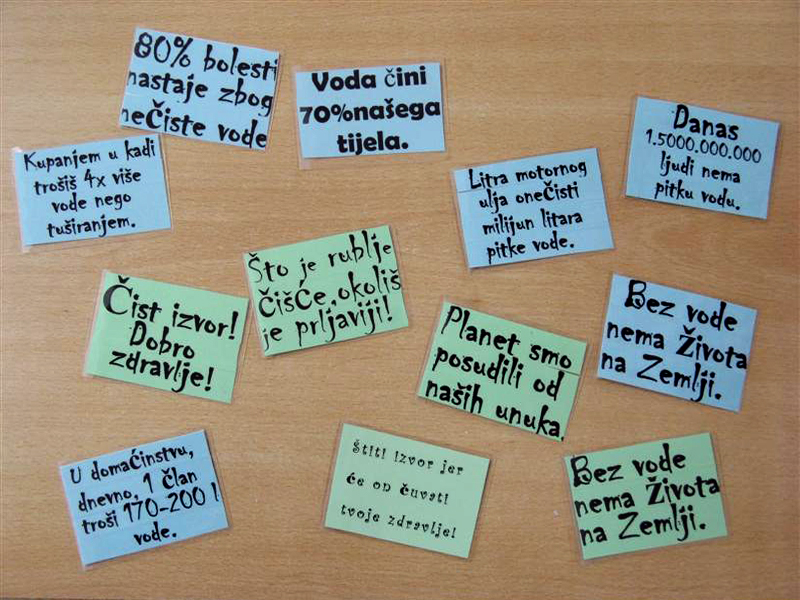 80% bolesti
nastaje zbog
nečiste vode
Voda čini
70%našega
tijela.
Danas
1.5000.000.000
ljudi nema
pitku vodu.
Kupanjem u kadi
trošiš 4x više
vode nego
tuširanjem.
Litra motornog
ulja onečisti
milijun litara
pitke vode.
Što je rublje
čišće,okoliš
je prljaviji!
Čist izvor!
Dobro
zdravlje!
Planet smo
posudili od
naših unuka.
Bez vode
nema života
na Zemlji.
U domaćinstvu,
dnevno, 1 član
troši 170-200 l
vode.
Štiti izvor jer
će on čuvati
tvoje zdravlje!
Bez vode
nema života
na Zemlji.